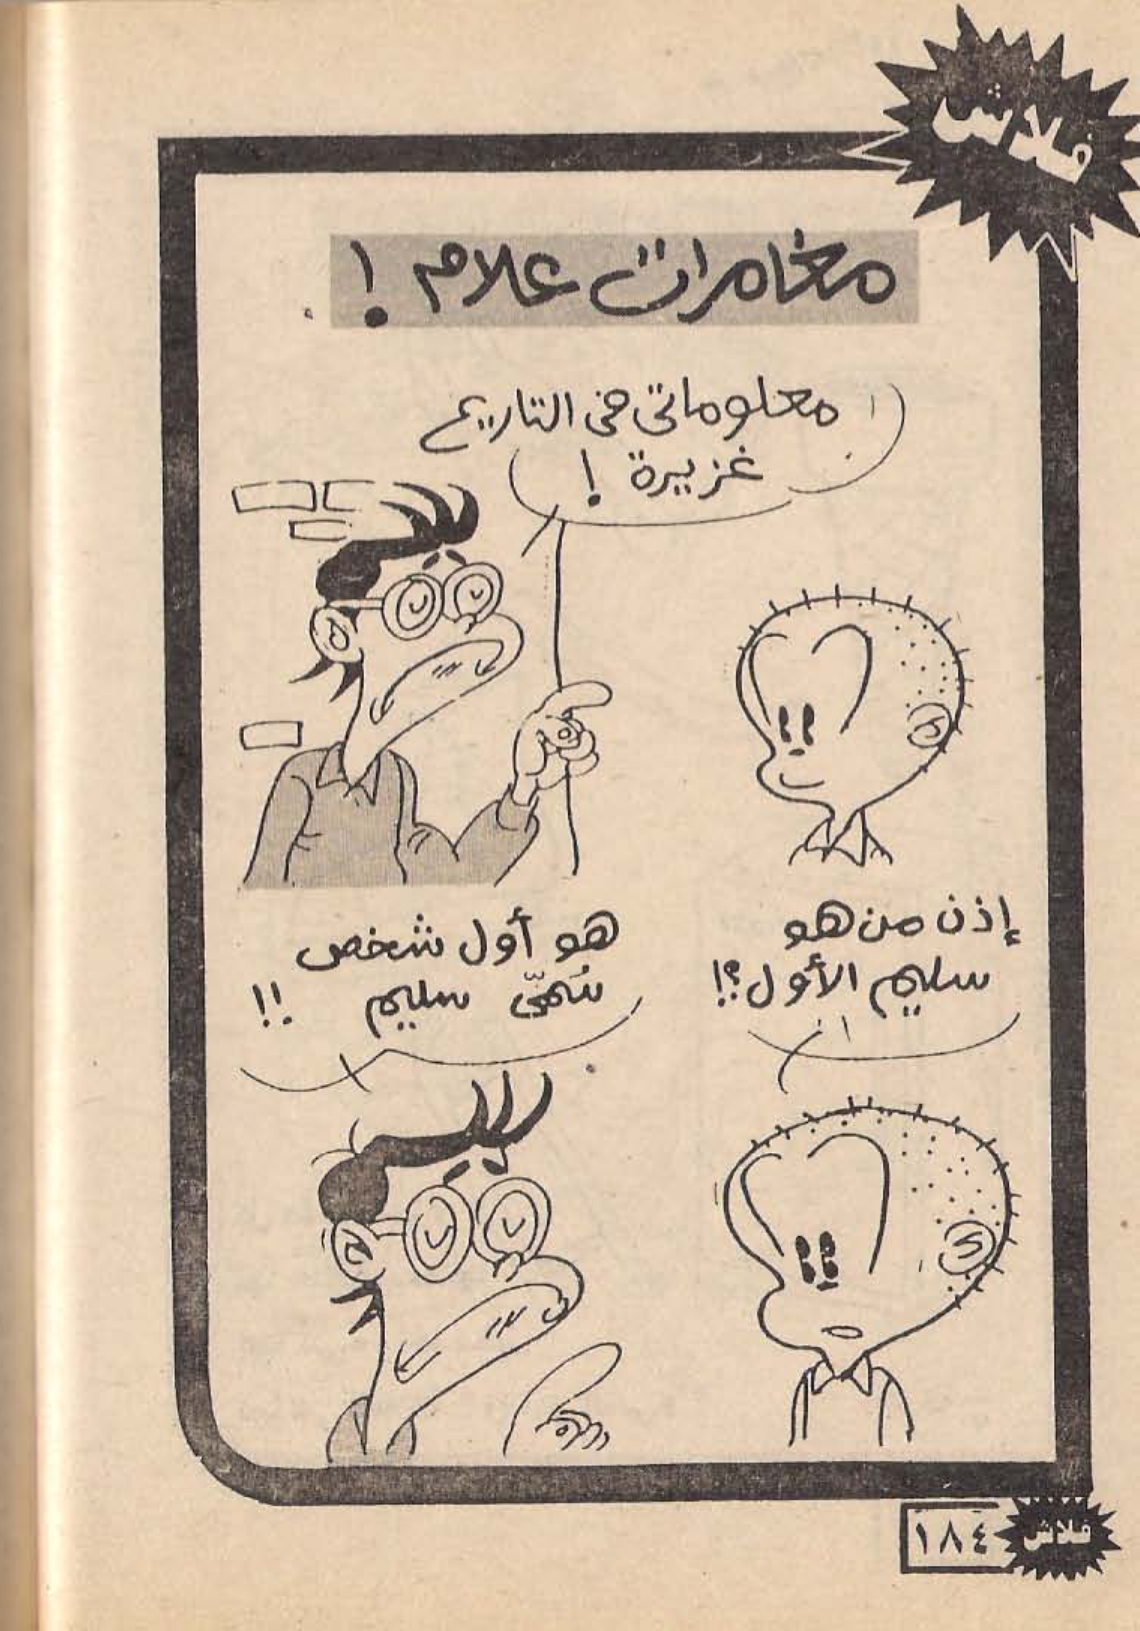 فلاش
مغامرات علام !
معلوماتى فى التاريخ
غزيرة !
إذن من هو
سليم الأول ؟!
هو أول شخص
سُمّىَ سليم !!
١٨٤ فلاش